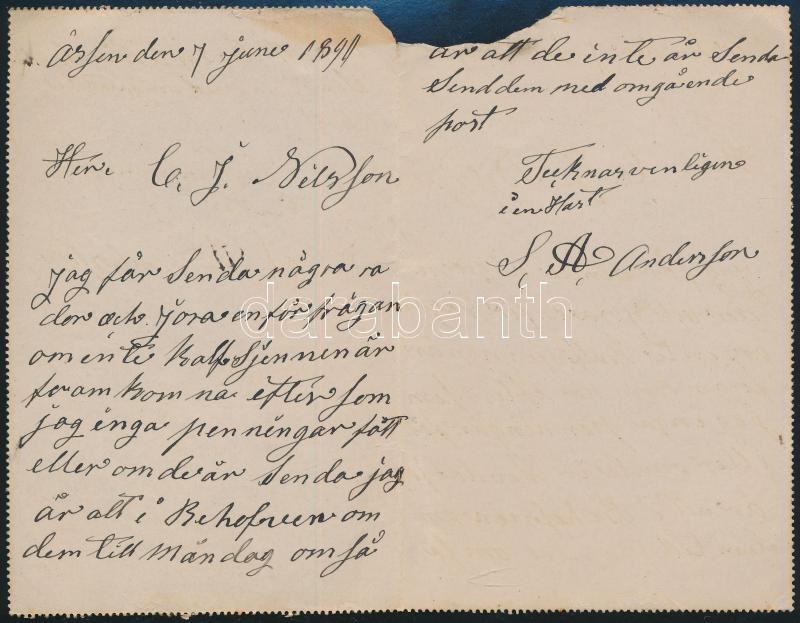 den 7 june 1891
Herr C. J. Nilsson
jag får Senda några ra
der och jöra en förfrågan
om inte kalfsjennen är
framkomna efter som
jag inga penningar fått
eller om de är Senda jag
är alt i Behofven om
dem till Måndag om så
är att de inte är Senda
Send dem med omgående
post
Tecknar venligen
i en Hast
S. A. Anderson
darabanth